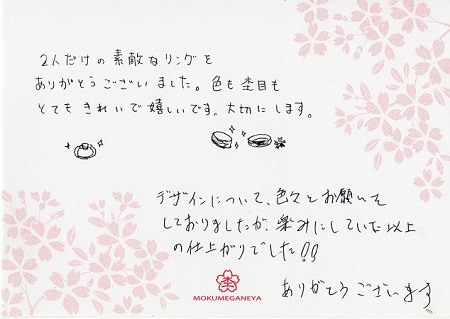 2人だけの素敵なリングを
ありがとうございました。色も杢目も
とてもきれいで嬉しいです。大切にします。
デザインについて、色々とお願いを
しておりましたが、楽みにしていた以上
の仕上がりでした!!
ありがとうございます
MOKUMEGANEYA